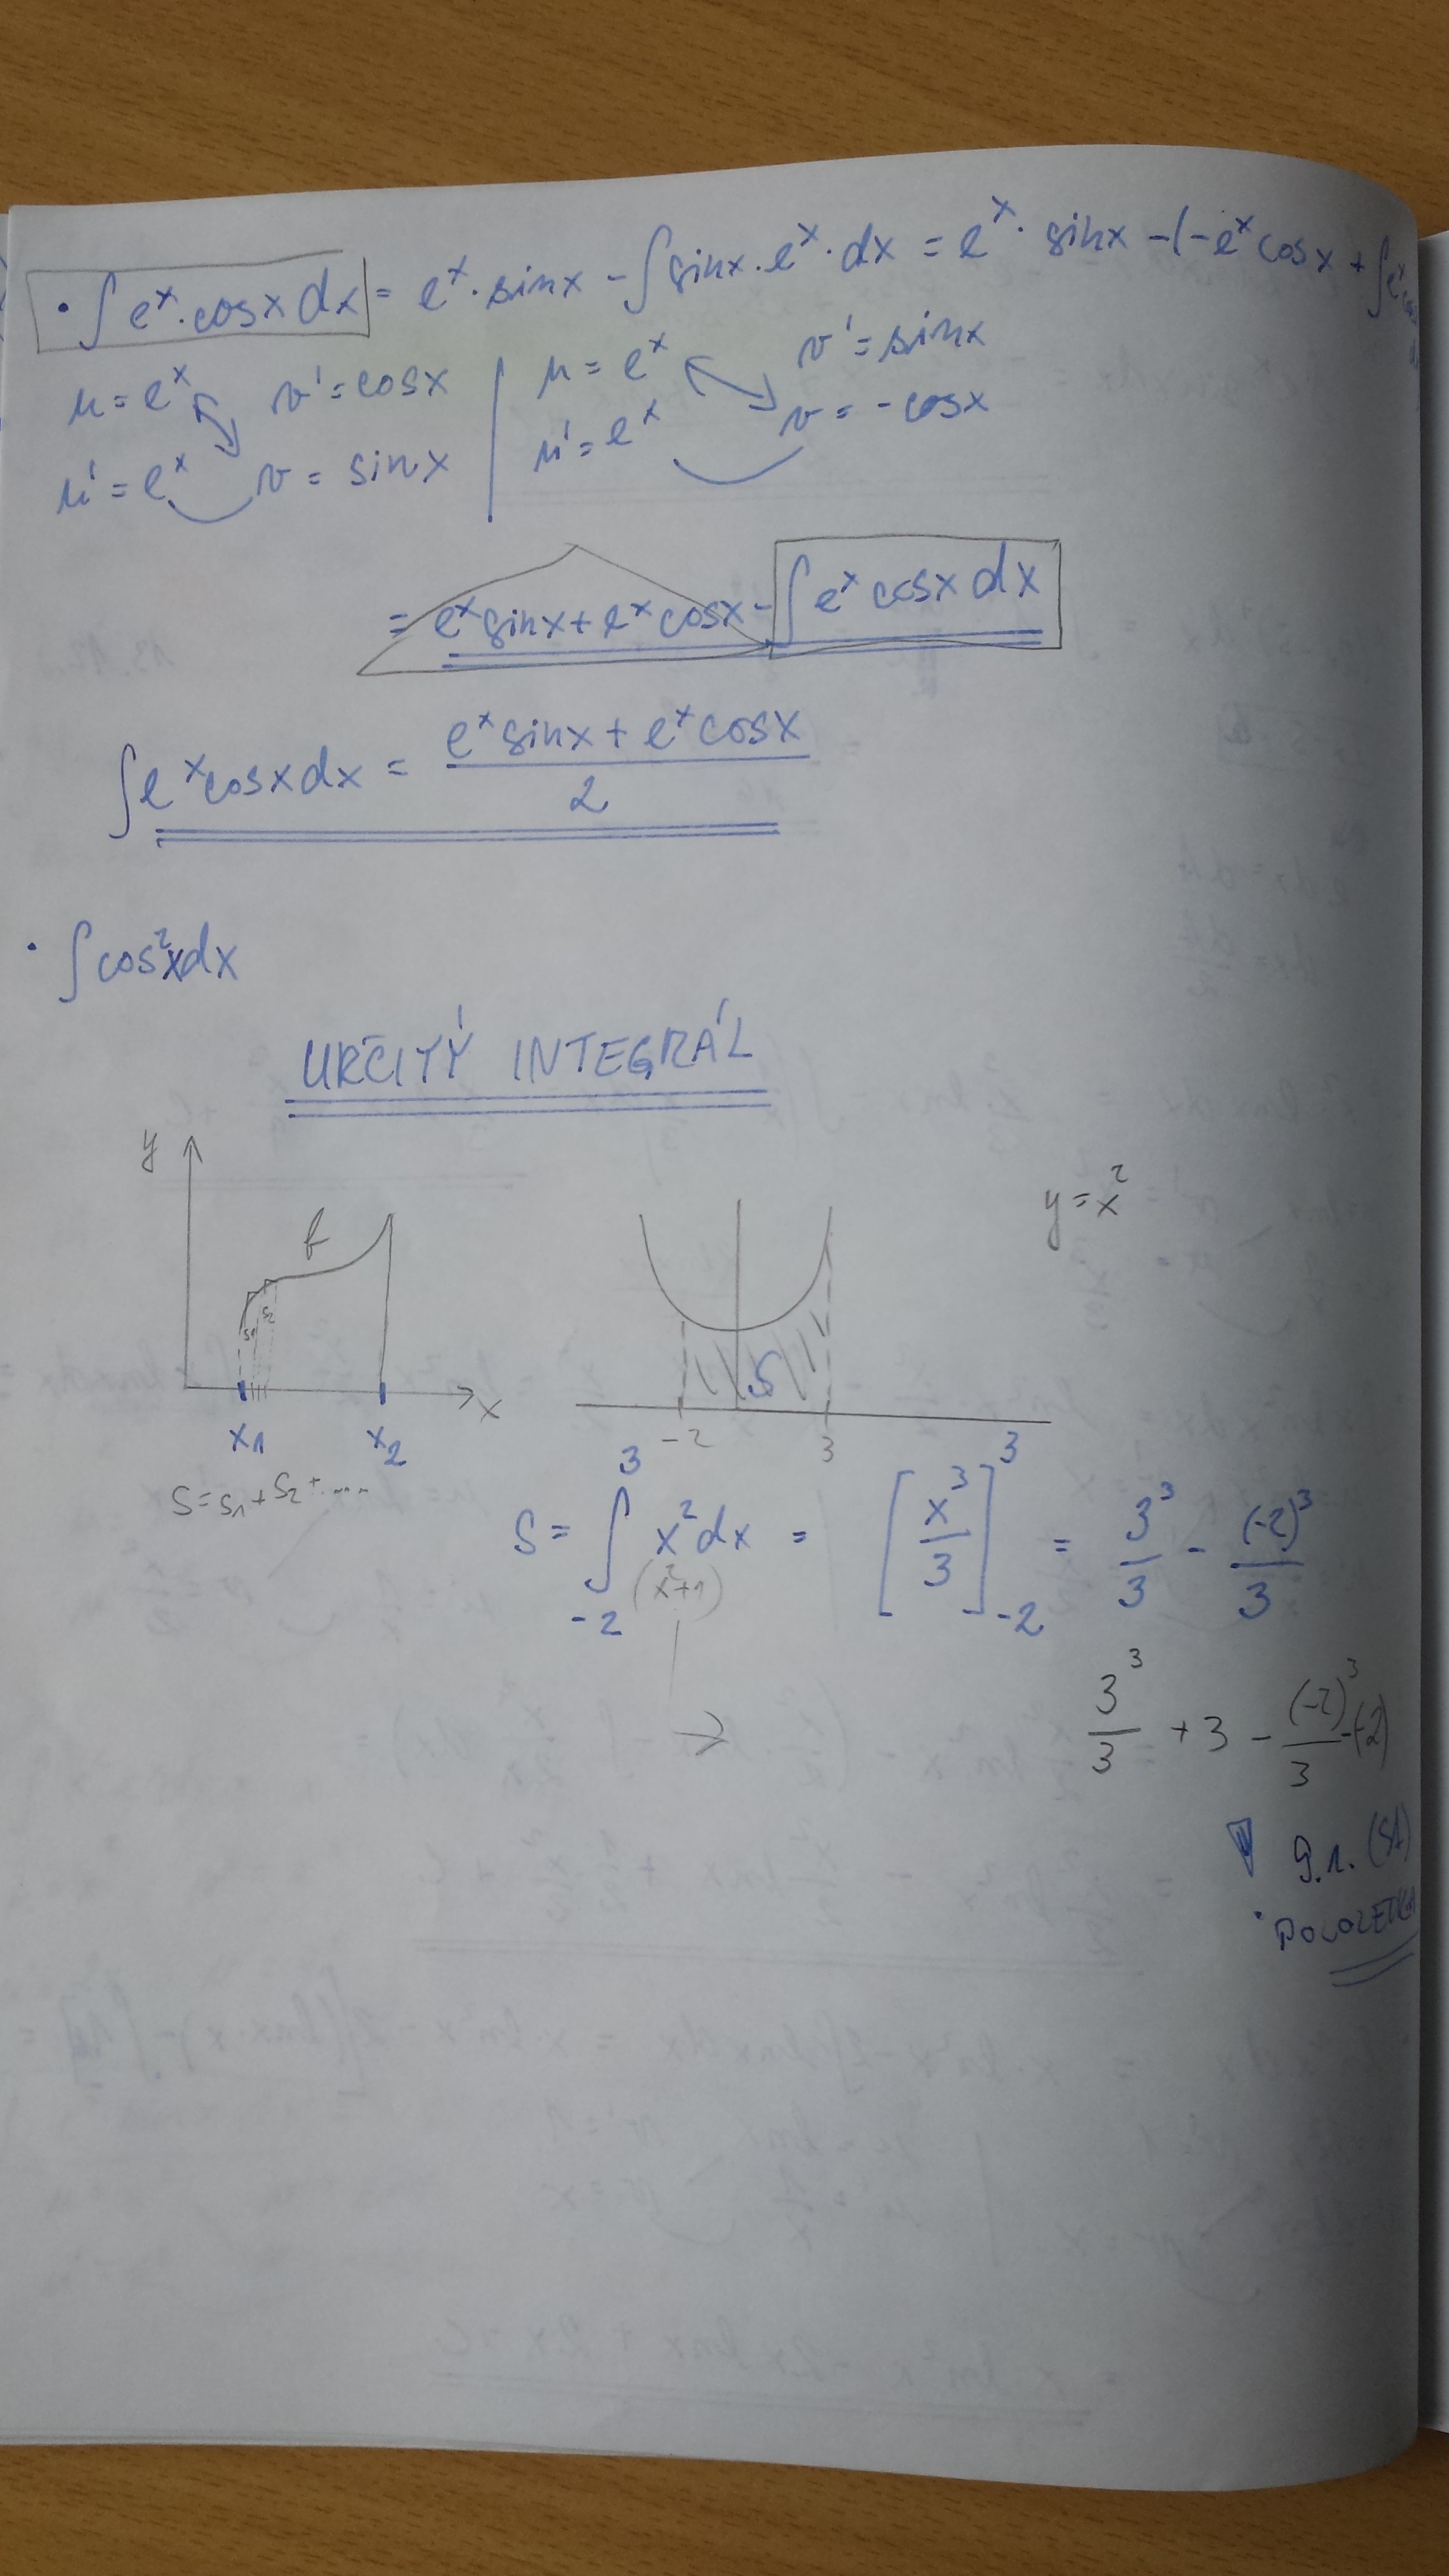 • ∫ eˣ · cosx dx = eˣ · sinx − ∫ sinx · eˣ · dx = eˣ · sinx − (−eˣ cosx + ∫ eˣ
u = eˣ v' = cosx | u = eˣ v' = sinx
u' = eˣ v = sinx | u' = eˣ v = −cosx
= eˣ sinx + eˣ cosx − ∫ eˣ cosx dx
∫ eˣ cosx dx = (eˣ sinx + eˣ cosx) / 2
• ∫ cos²x dx
URČITÝ INTEGRÁL
y f y = x²
S1 S2 S
x₁ x₂ x −2 3
S = S₁ + S₂ + ....
S = ∫₋₂³ x² dx = [x³/3]₋₂³ = 3³/3 − (−2)³/3
(x²+1)
→ 3³/3 + 3 − (−2)³/3 − (−2)
9.1.